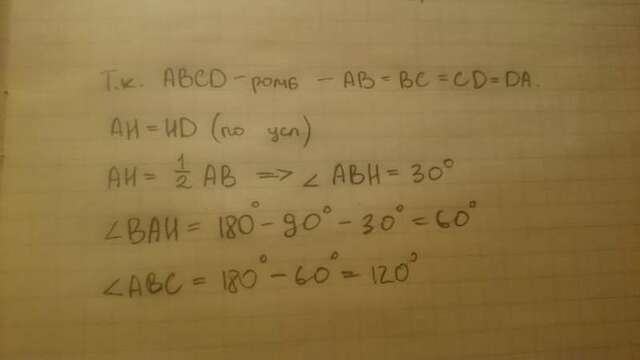 Т.к. ABCD - ромб - AB = BC = CD = DA.
AH = HD (по усл)
AH = 1/2 AB => ∠ ABH = 30°
∠BAH = 180° - 90° - 30° = 60°
∠ABC = 180° - 60° = 120°